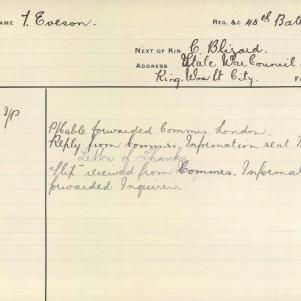 NAME T. Eveson. REG. &C 48th Bat
NEXT OF KIN C. Blizard.
ADDRESS State War Council.
King Wm St City.
P/P
P/Cable forwarded Commrs London.
Reply from Commrs, Information sent
Letter of Thanks
"Slip" received from Commrs. Informat
forwarded Inquirer.